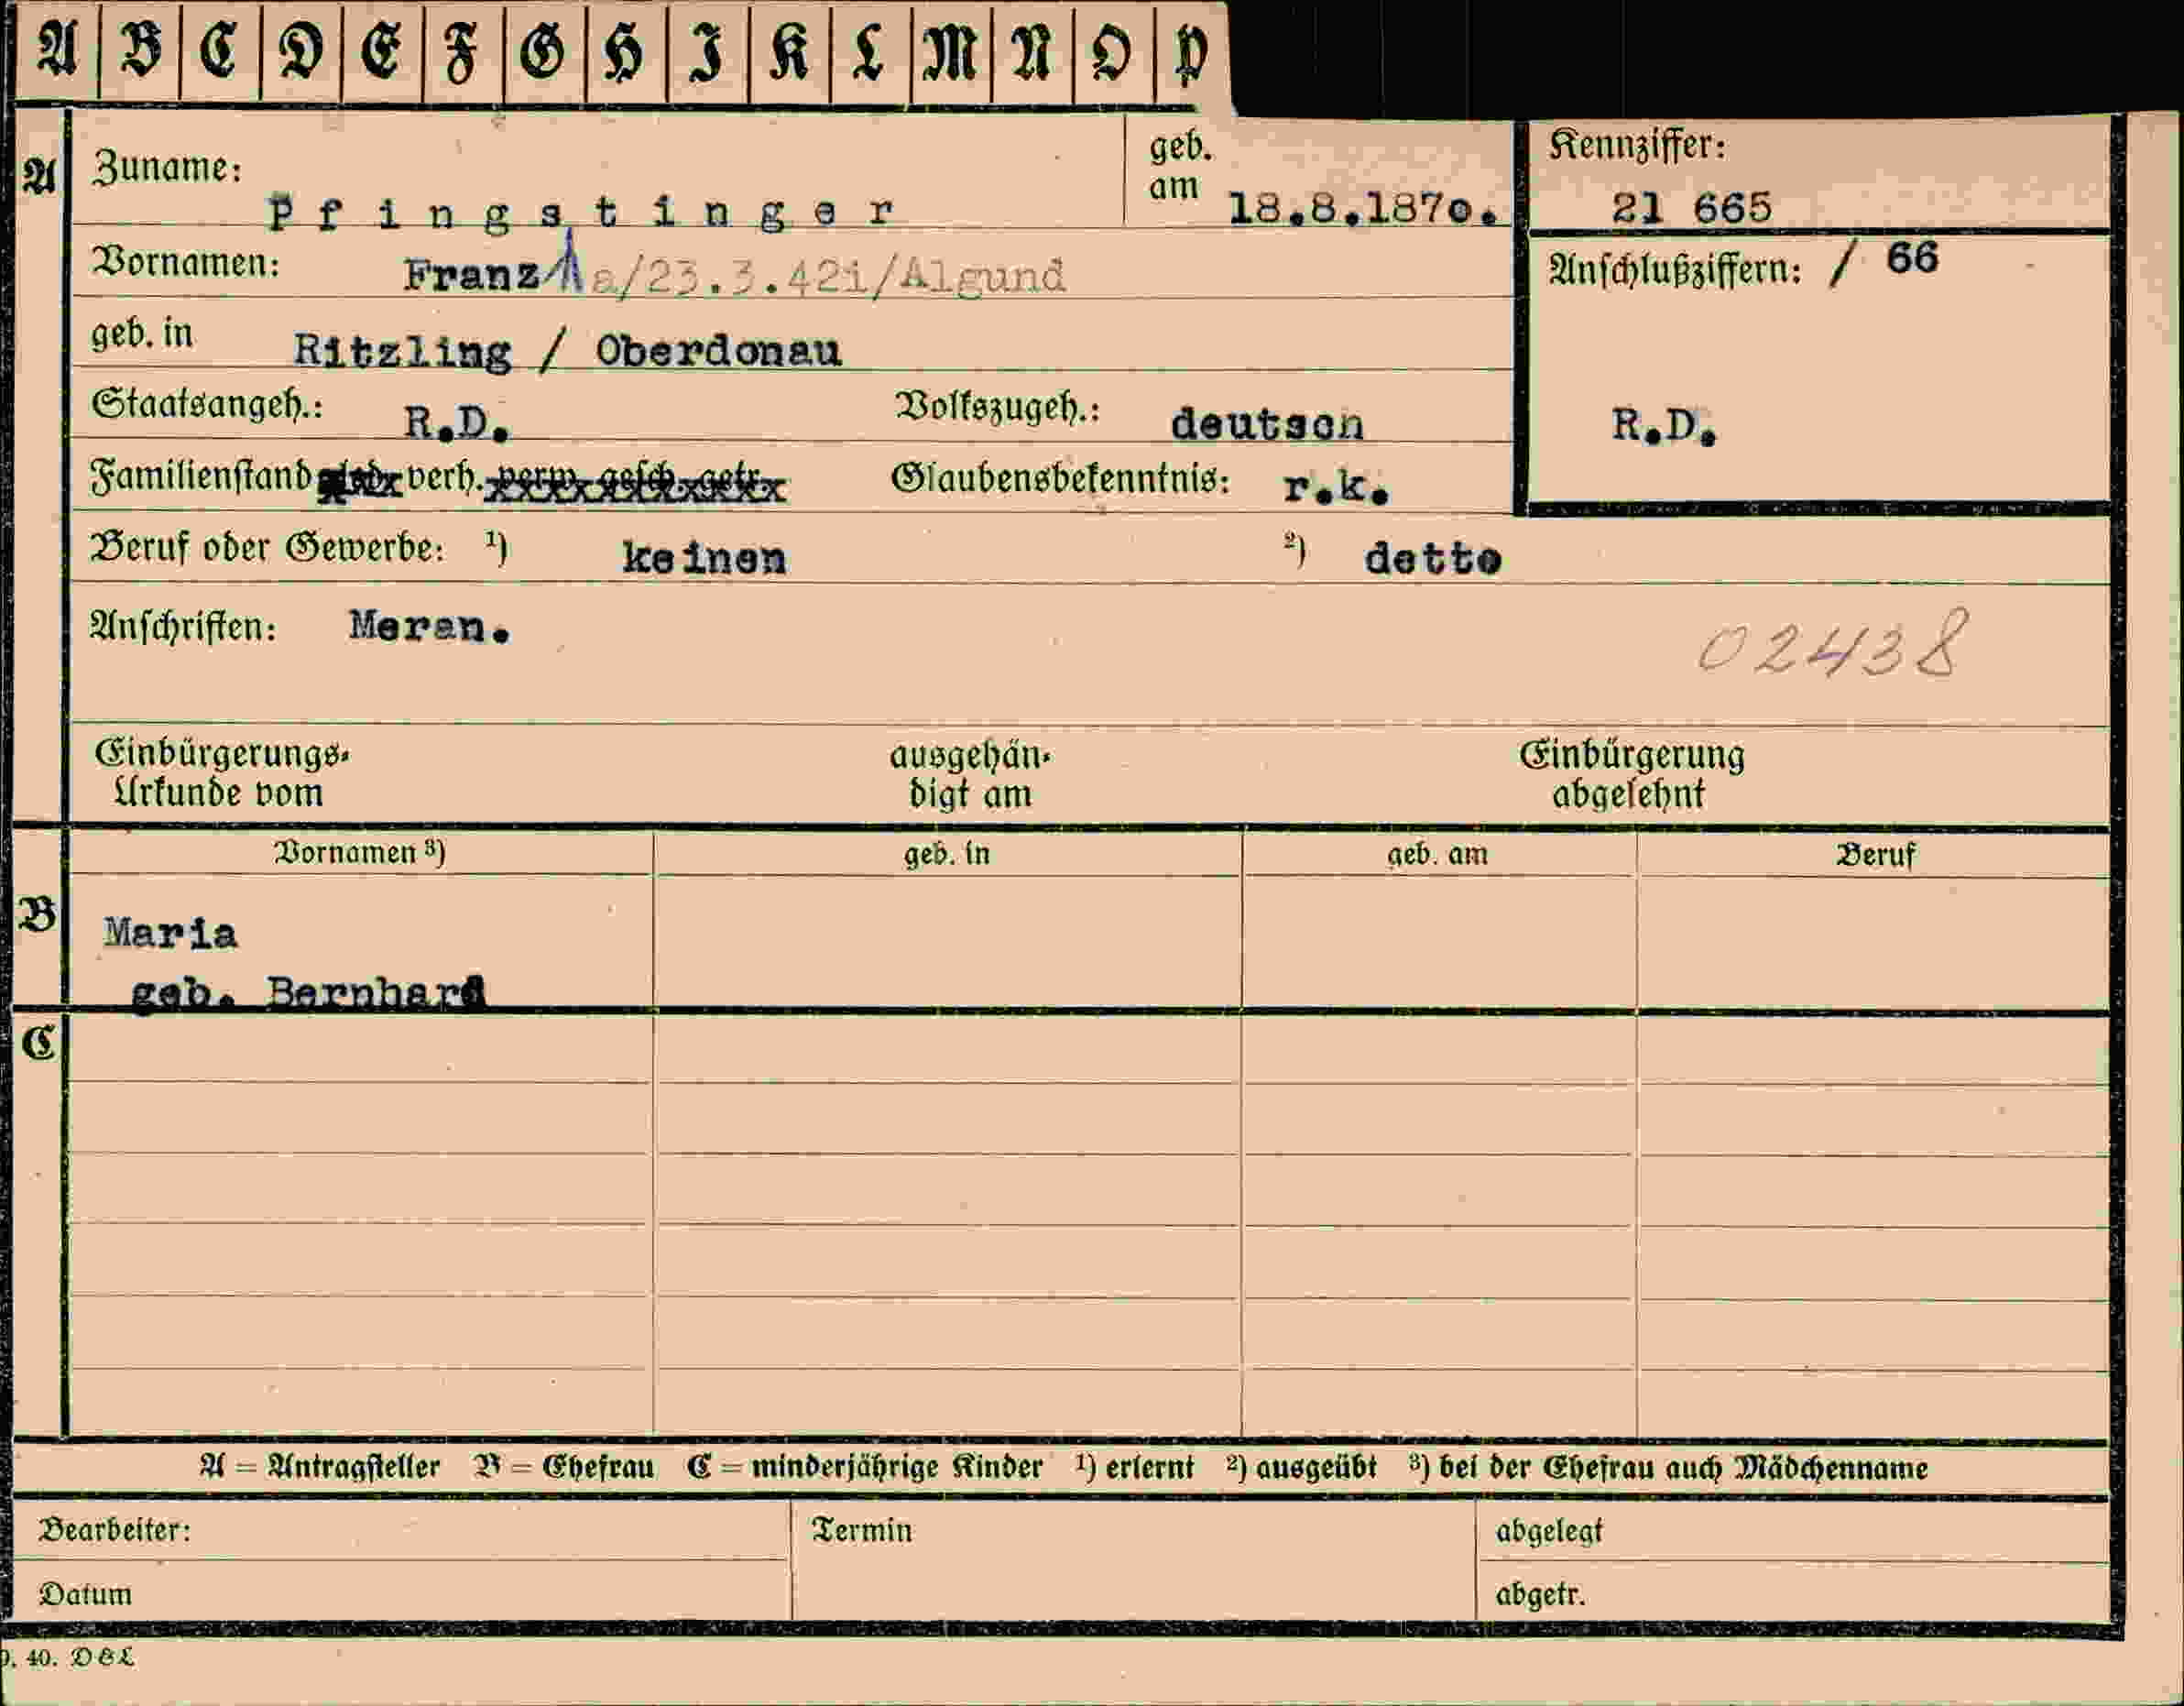 A B C D E F G H I K L M N O P
A Zuname: Pfingstinger geb. am 18.8.1870.
Kennziffer: 21 665
Vornamen: Franz a/23.3.42i/Algund
Anschlußziffern: / 66
geb. in Ritzling / Oberdonau
Staatsangeh.: R.D. Volkszugeh.: deutsch
R.D.
Familienstand led. verh. verw. gesch. getr. Glaubensbekenntnis: r.k.
Beruf oder Gewerbe: 1) keinen 2) detto
Anschriften: Meran.
02438
Einbürgerungs-Urkunde vom ausgehändigt am Einbürgerung abgelehnt
Vornamen 3) geb. in geb. am Beruf
B Maria
geb. Bernhard
C
A = Antragsteller B = Ehefrau C = minderjährige Kinder 1) erlernt 2) ausgeübt 3) bei der Ehefrau auch Mädchenname
Bearbeiter: Termin abgelegt
Datum abgetr.
40. DBL